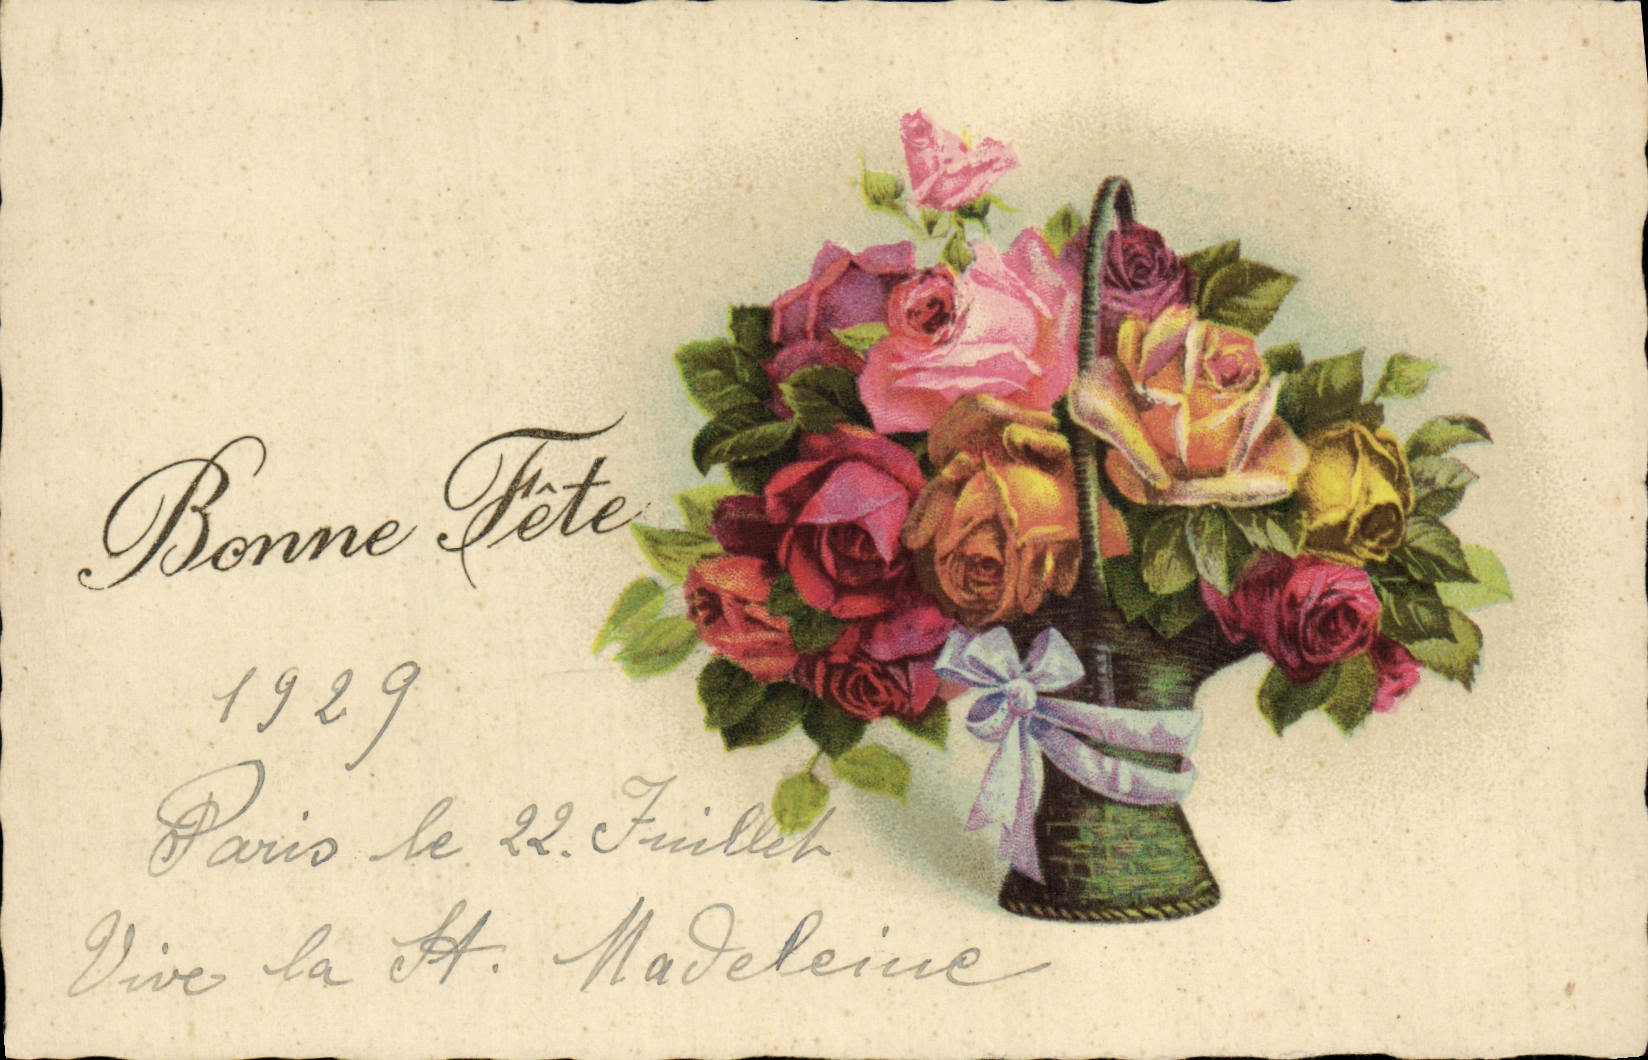 Bonne Fête
1929
Paris le 22. Juillet
Vive la St. Madeleine